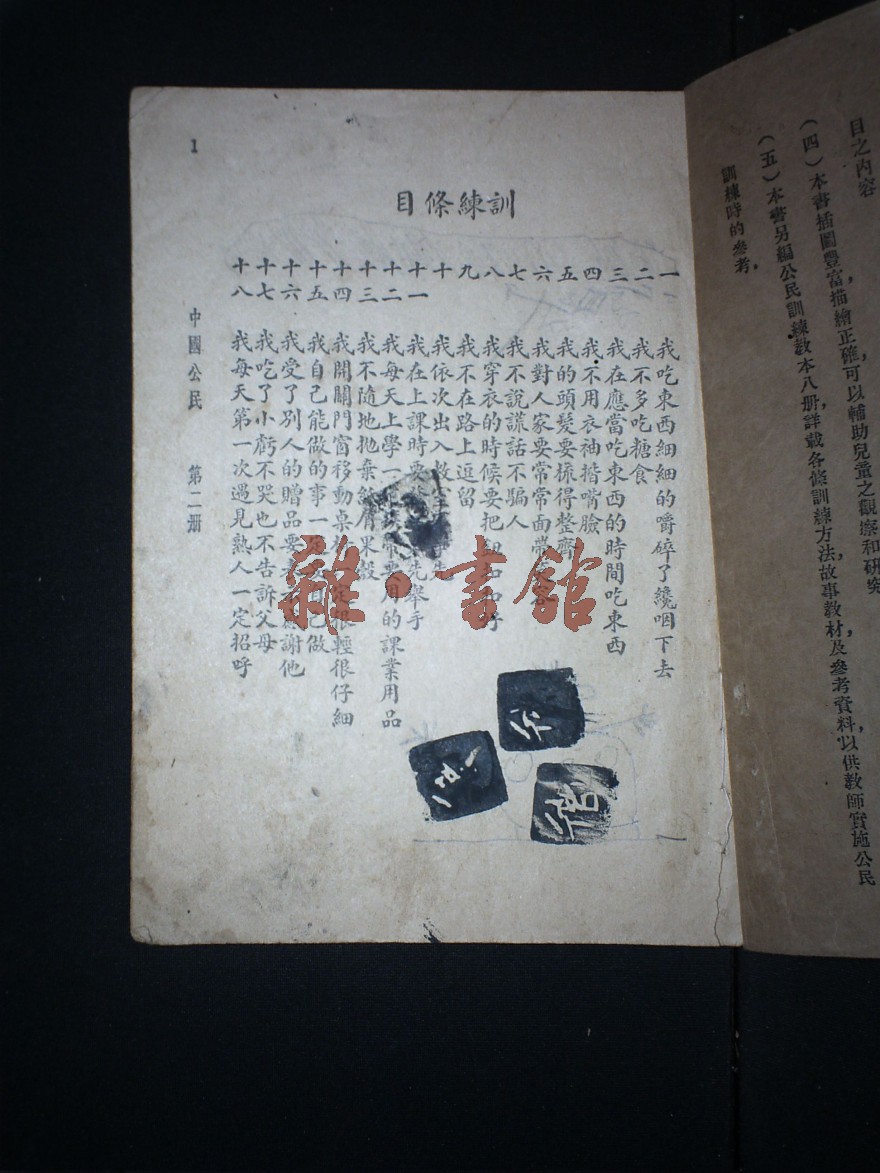 目之內容
（四）本書插圖豐富，描繪正確，可以輔助兒童之觀察和研究
（五）本書另編公民訓練教本八册，詳載各條訓練方法，故事教材及參考資料，以供教師實施公民
訓練時的參考。
訓練條目
一 我吃東西細細的嚼碎了纔咽下去
二 我不多吃糖食
三 我在應當吃東西的時間吃東西
四 我不用衣袖揩嘴臉
五 我的頭髮要梳得整齊
六 我對人家要常常面帶笑容
七 我不說謊話不騙人
八 我穿衣的時候要把鈕扣扣好
九 我不在路上逗留
十 我依次出入教室不爭先
十一 我在上課時要 先舉手
十二 我每天上學一 要用的課業用品
十三 我不隨地拋棄紙屑果殼
十四 我開關門窗移動桌 一定很輕很仔細
十五 我自己能做的事一定要自己做
十六 我受了別人的贈品要 感謝他
十七 我吃了小虧不哭也不告訴父母
十八 我每天第一次遇見熟人一定招呼
中國公民 第二册
1
雜·書館